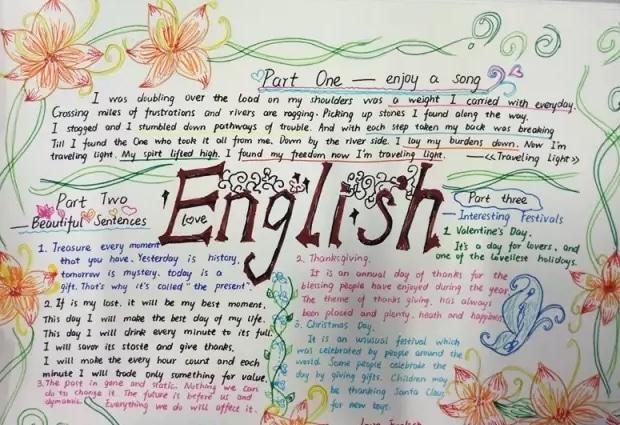 Part One — enjoy a song
I was doubling over the load on my shoulders was a weight I carried with everyday.
Crossing miles of frustrations and rivers are ragging. Picking up stones I found along the way.
I stagged and I stumbled down pathways of trouble. And with each step taken my back was breaking
Till I found the One who took it all from me. Down by the river side. I lay my burdens down. Now I'm
traveling light. My spirt lifted high. I found my freedom now I'm traveling light. —《Traveling Light》
English
love
Part Two
— Beautiful Sentences
1. Treasure every moment
that you have. Yesterday is history.
tomorrow is mystery. today is a
gift. That's why it's called "the present".
2. If is my last. it will be my best moment.
This day I will make the best day of my life.
This day I will drink every minute to its full.
I will savor its staste and give thanks.
I will make the every hour count and each
minute I will trade only something for value.
3. The past in gone and static. Nothing we can
do to change it. The future is before us and
dymamic. Everything we do will affect it.
Part three
— Interesting Festivals
1 Valentine's Day.
It's a day for lovers. and
one of the loveliest holidays.
2. Thanksgiving.
It is an annual day of thanks for the
blessing people have enjoyed during the year
The theme of thanks giving. has always
been placed and plenty. heath and happiness
3. Christmas Day.
It is an unusual festival which
was celebrated by people around the
world. Some people celebrate the
day by giving gifts. Children may
be thanking Santa Claus
for new toys.